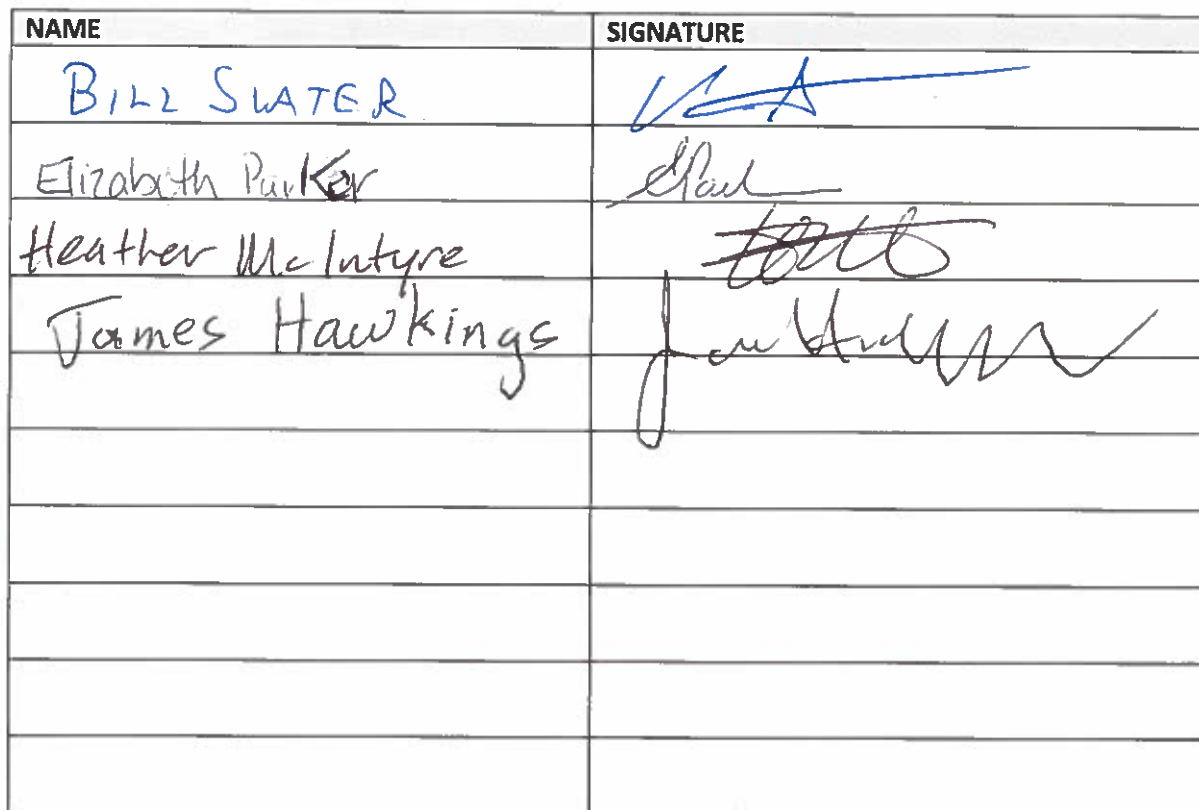 NAME SIGNATURE
BILL SLATER
Elizabeth Parker
Heather McIntyre
James Hawkings